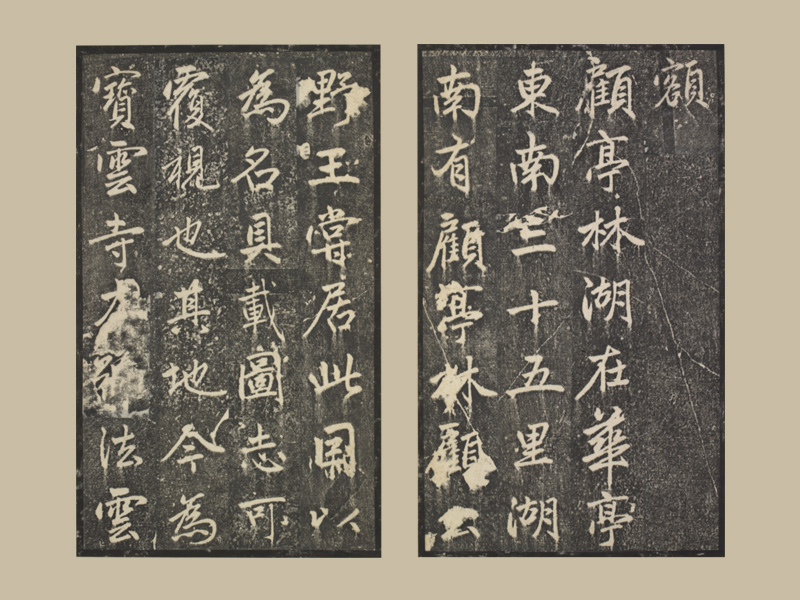 額
顧亭林湖在華亭
東南三十五里湖
南有顧亭林顧公
野王嘗居此因以
為名具載圖志可
覆視也其地今為
寶雲寺
法雲